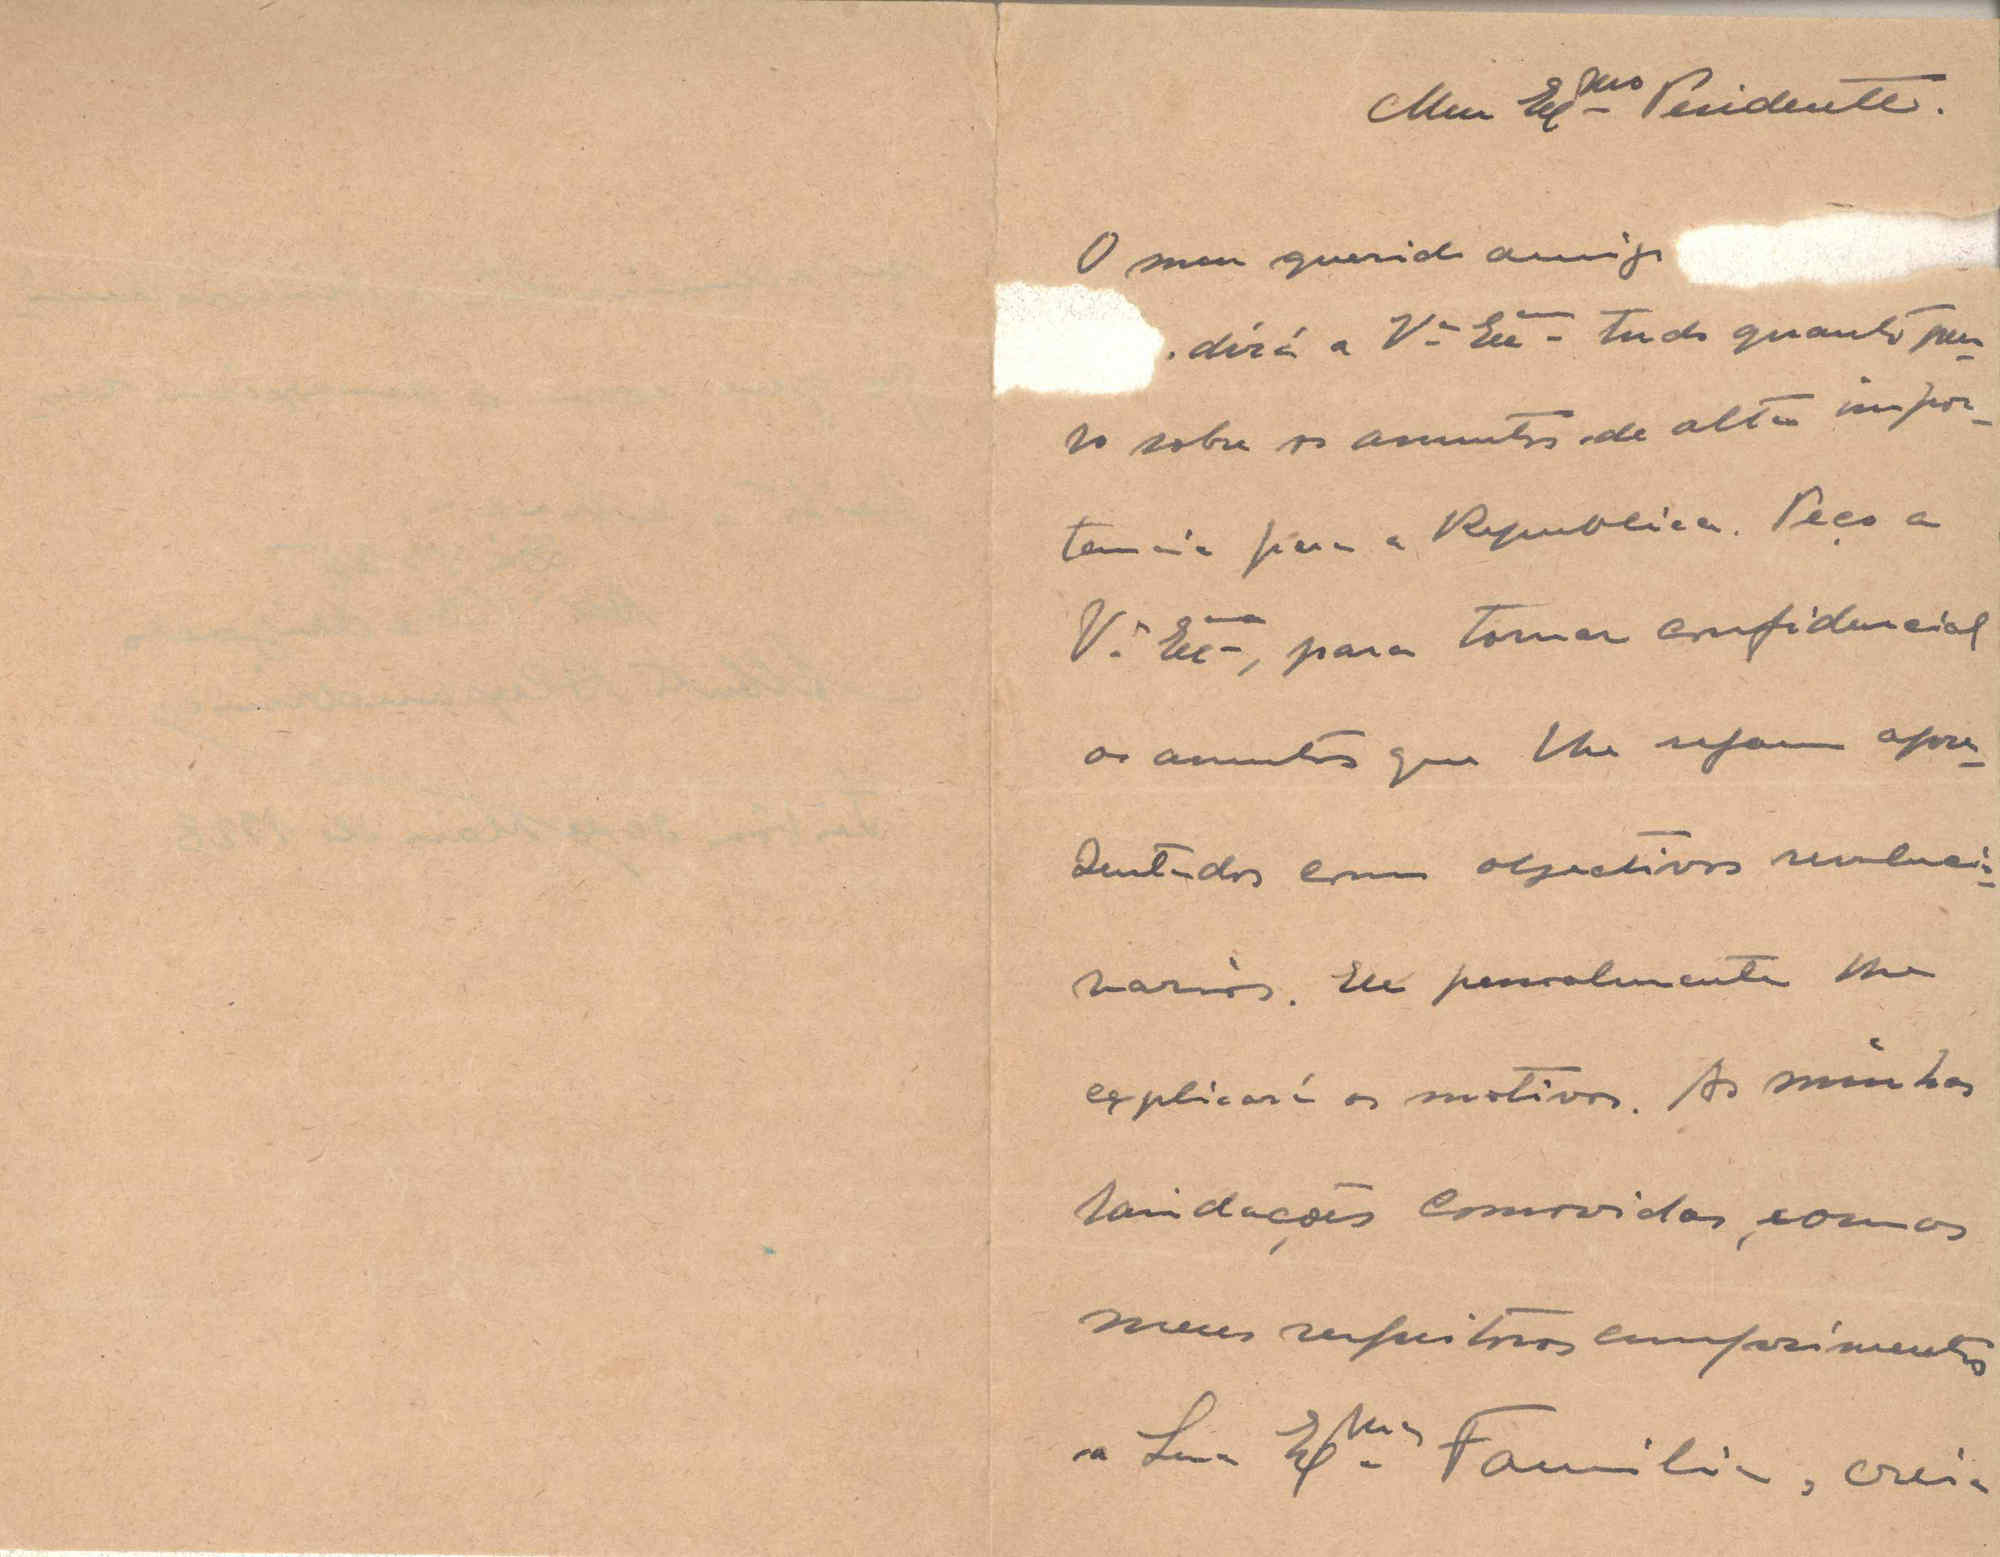 Meu Exmo Presidente.
O meu querido amigo
dirá a Vª Exª tudo quanto pen-
so sobre os assuntos de alta impor-
tancia para a Republica. Peço a
Vª Exª, para tomar confidencial
os assuntos que lhe sejam apre-
sentados como objectivos revolucio-
narios. Ele pessoalmente lhe
explicará os motivos. As minhas
saudações comovidas, com os
meus respeitosos cumprimentos
a Sua Exma Familia, creia